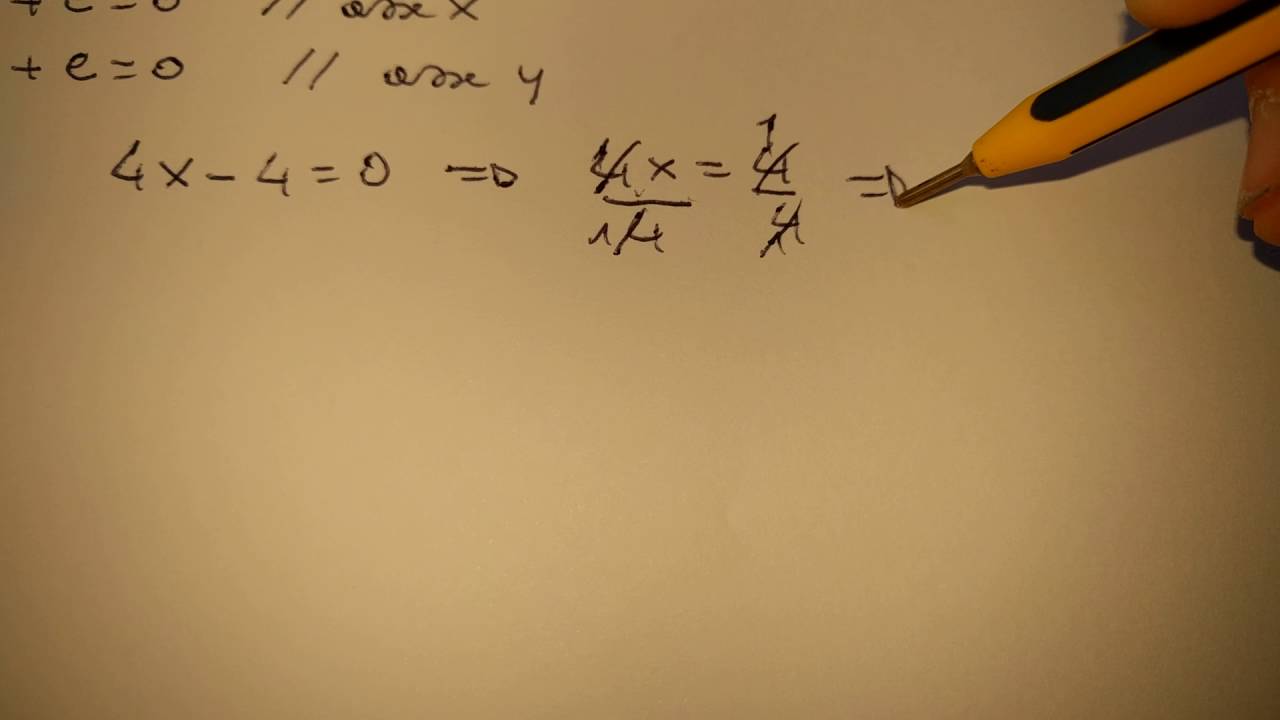 + c = 0 // asse x
+ c = 0 // asse y
4x - 4 = 0 => 4x/4 = 4/4 =>